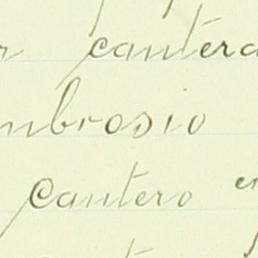 cantera
mbrosio
cantero